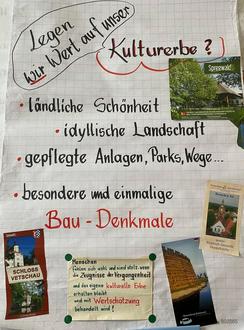 Legen
wir Wert auf unser
Kulturerbe?
Spreewald
• ländliche Schönheit
• idyllische Landschaft
• gepflegte Anlagen, Parks, Wege...
• besondere und einmalige
Bau - Denkmale
SCHLOSS
VETSCHAU
Menschen
fühlen sich wohl und sind stolz, wenn
die Zeugnisse der Vergangenheit
und das eigene kulturelle Erbe
erhalten bleibt
und mit Wertschätzung
behandelt wird!